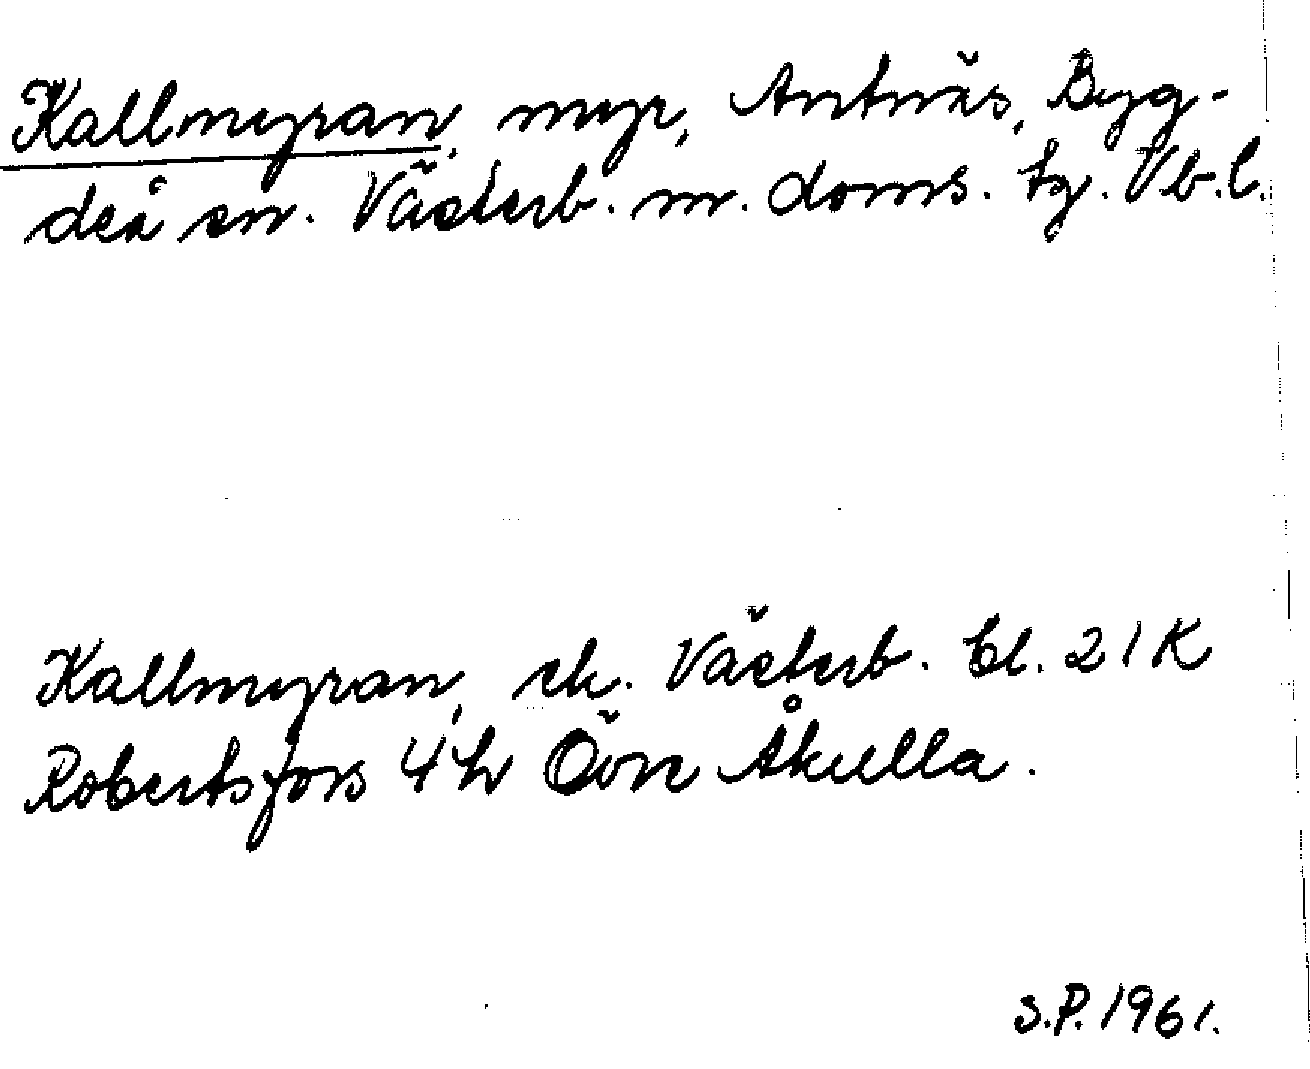 Kallmyran, myr, Antnäs, Byg-
deå sn. Västerb. m. doms. tg. Vb. l.
Kallmyran, ek. Västerb. bl. 21K
Robertsfors 4h Övre Åkulla.
S.P. 1961.